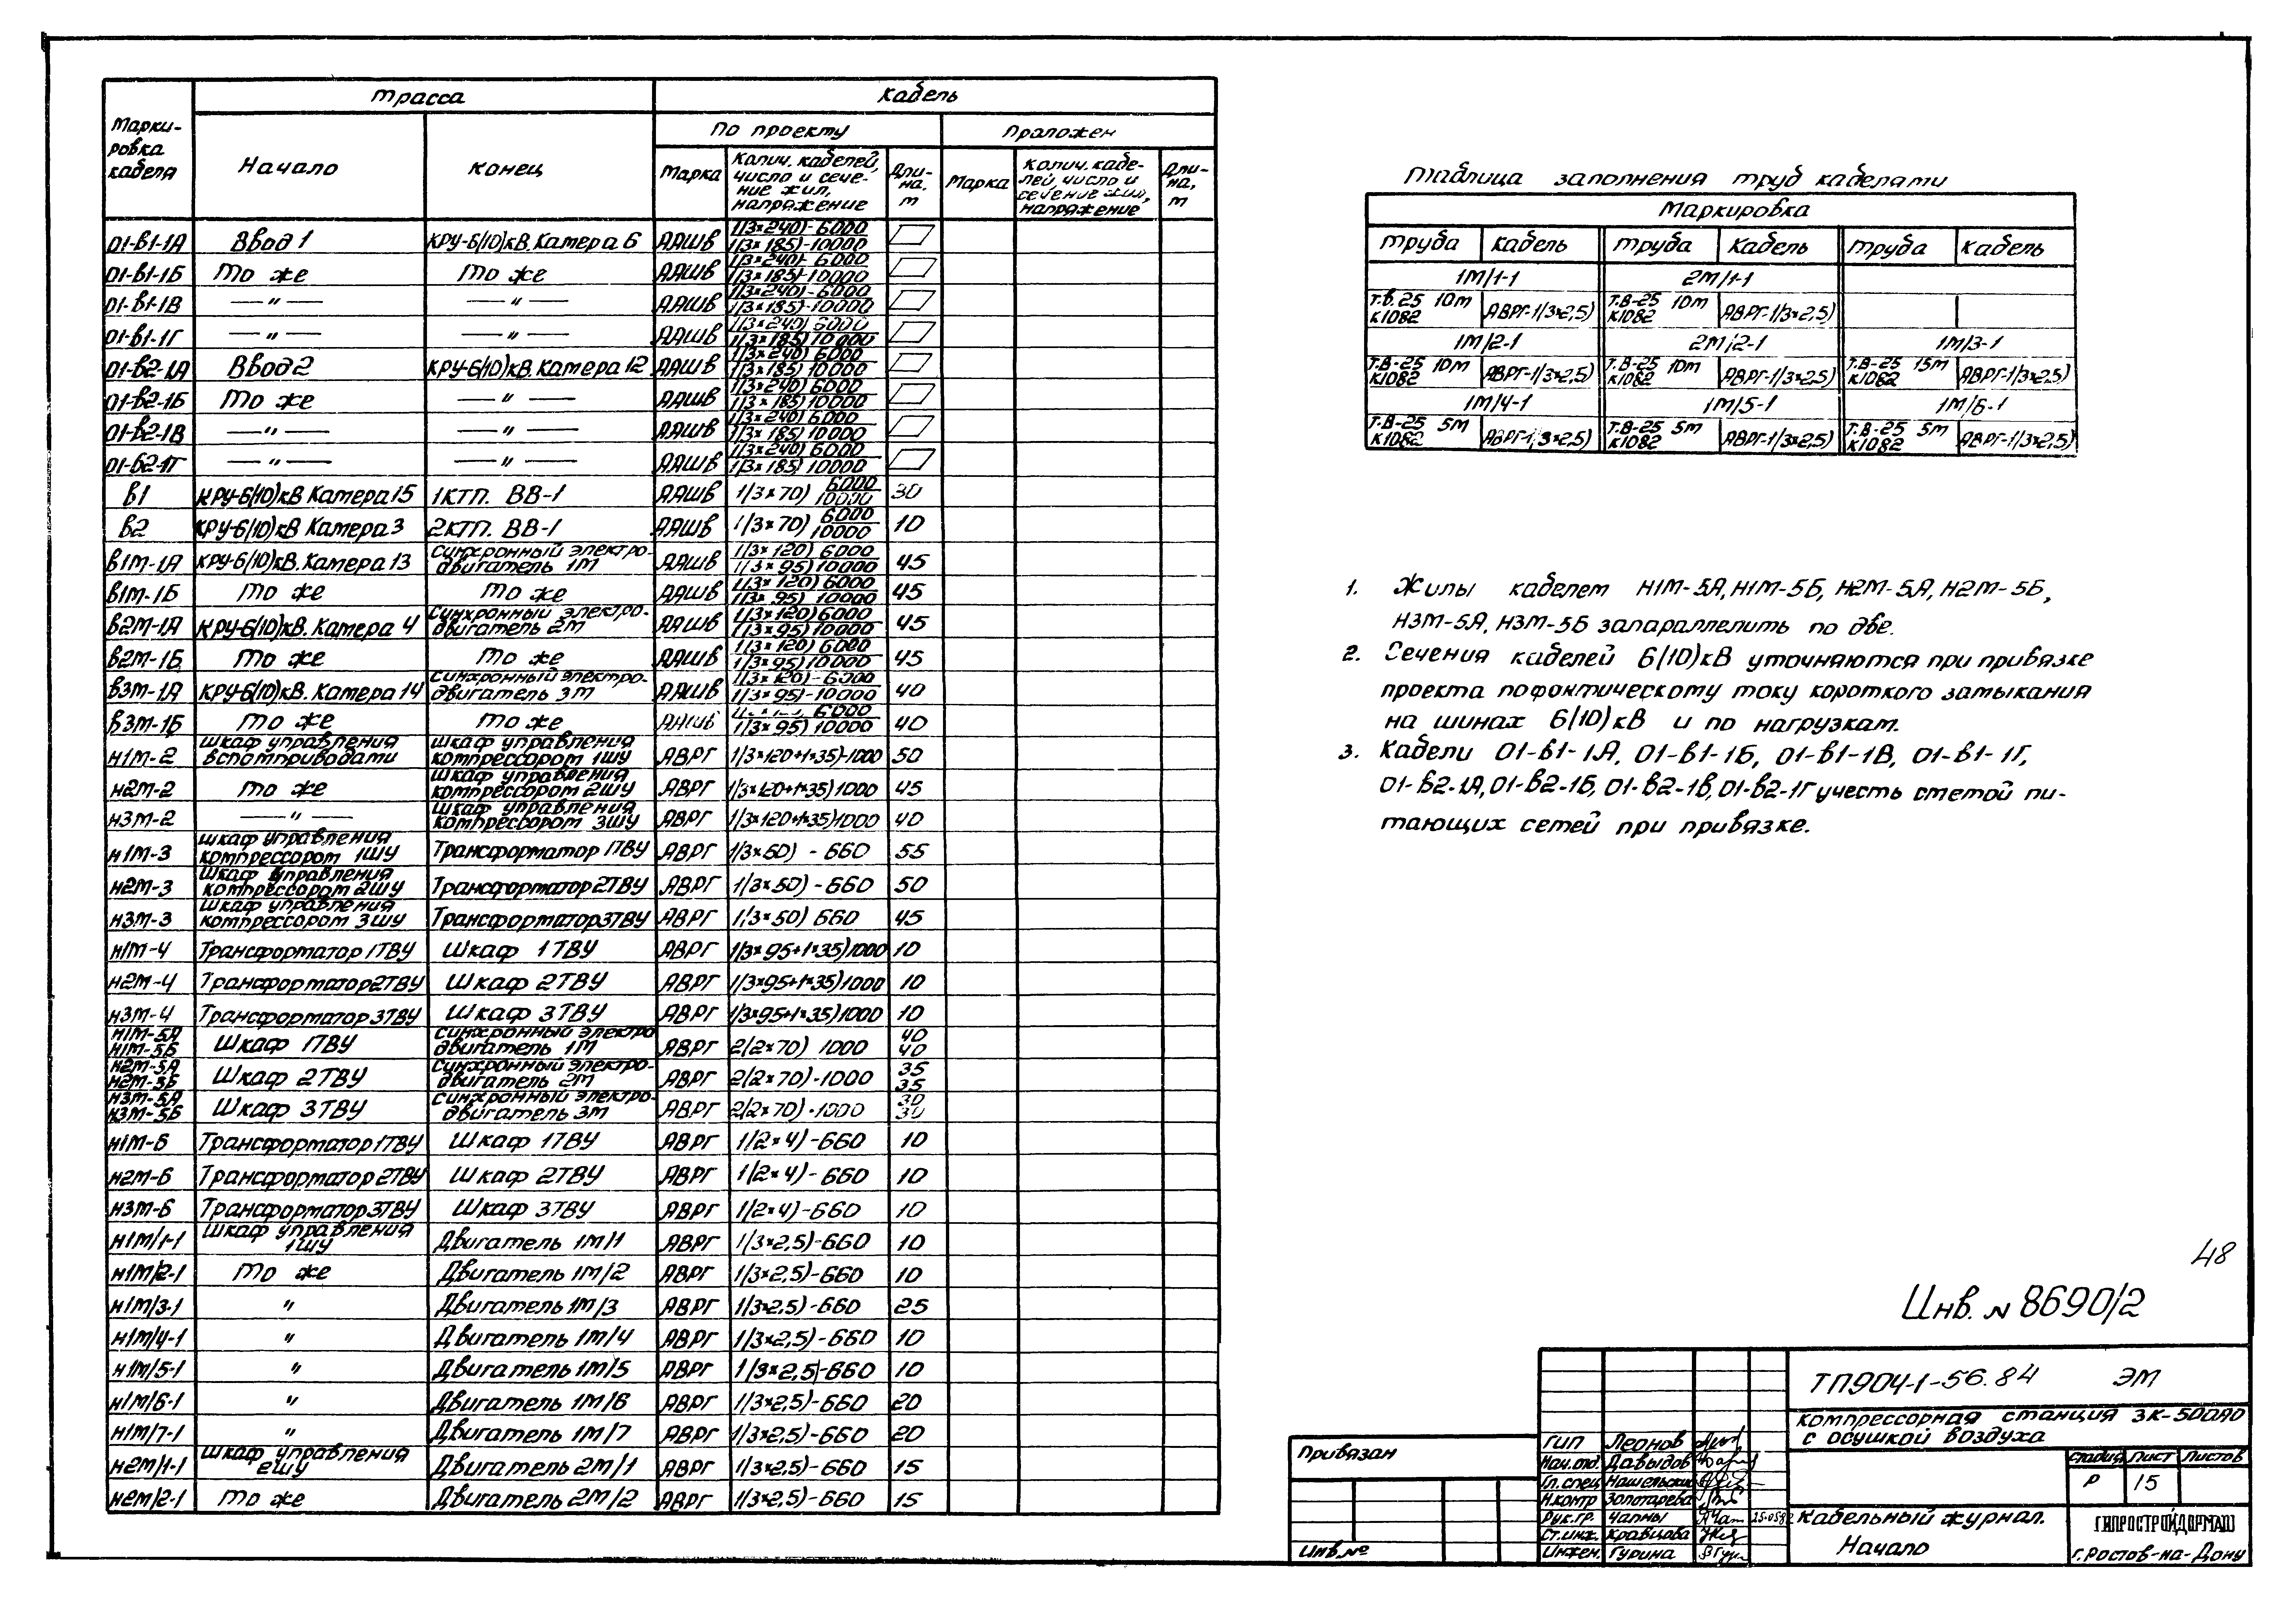 Марки-
ровка
кабеля
Трасса
Кабель
Начало
Конец
По проекту
Проложен
Марка
Колич. кабелей,
число и сече-
ние жил,
напряжение
Дли-
на,
м
Марка
Колич. кабе-
лей, число и
сечение жил,
напряжение
Дли-
на,
м
01-В1-1А Ввод 1 КРУ-6(10)кВ. Камера 6 ААШв 1(3×240)-6000 1(3×185)-10000
01-В1-1Б То же То же ААШв 1(3×240)-6000 1(3×185)-10000
01-В1-1В —"— —"— ААШв 1(3×240)-6000 1(3×185)-10000
01-В1-1Г —"— —"— ААШв 1(3×240) 6000 1(3×185) 10000
01-В2-1А Ввод 2 КРУ-6(10)кВ. Камера 12 ААШв 1(3×240) 6000 1(3×185) 10000
01-В2-1Б То же —"— ААШв 1(3×240) 6000 1(3×185) 10000
01-В2-1В —"— —"— ААШв 1(3×240) 6000 1(3×185) 10000
01-Б2-1Г —"— —"— ААШв 1(3×240) 6000 1(3×185) 10000
В1 КРУ-6(10)кВ Камера 15 1КТП. ВВ-1 ААШв 1(3×70) 6000 10000 30
В2 КРУ-6(10)кВ Камера 3 2КТП. ВВ-1 ААШв 1(3×70) 6000 10000 10
В1М-1А КРУ-6(10)кВ. Камера 13 Синхронный электро-двигатель 1М ААШв 1(3×120) 6000 1(3×95) 10000 45
В1М-1Б То же То же ААШв 1(3×120) 6000 1(3×95) 10000 45
В2М-1А КРУ-6(10)кВ. Камера 4 Синхронный электро-двигатель 2М ААШв 1(3×120) 6000 1(3×95) 10000 45
В2М-1Б То же То же ААШв 1(3×120) 6000 1(3×95) 10000 45
В3М-1А КРУ-6(10)кВ. Камера 14 Синхронный электро-двигатель 3М ААШв 1(3×120)-6000 1(3×95)-10000 40
В3М-1Б То же То же ААШв 6000 1(3×95) 10000 40
Н1М-2 Шкаф управления вспомприводами Шкаф управления компрессором 1ШУ АВРГ 1(3×120+1×35)-1000 50
Н2М-2 То же Шкаф управления компрессором 2ШУ АВРГ 1(3×120+1×35)1000 45
Н3М-2 —"— Шкаф управления компрессором 3ШУ АВРГ 1(3×120+1×35)1000 40
Н1М-3 Шкаф управления компрессором 1ШУ Трансформатор 1ТВУ АВРГ 1(3×50) - 660 55
Н2М-3 Шкаф управления компрессором 2ШУ Трансформатор 2ТВУ АВРГ 1(3×50)-660 50
Н3М-3 Шкаф управления компрессором 3ШУ Трансформатор 3ТВУ АВРГ 1(3×50) 660 45
Н1М-4 Трансформатор 1ТВУ Шкаф 1ТВУ АВРГ 1(3×95+1×35)1000 10
Н2М-4 Трансформатор 2ТВУ Шкаф 2ТВУ АВРГ 1(3×95+1×35)1000 10
Н3М-4 Трансформатор 3ТВУ Шкаф 3ТВУ АВРГ 1(3×95+1×35)1000 10
Н1М-5А Н1М-5Б Шкаф 1ТВУ Синхронный электро двигатель 1М АВРГ 2(2×70) 1000 40 40
Н2М-5А Н2М-5Б Шкаф 2ТВУ Синхронный электро-двигатель 2М АВРГ 2(2×70)-1000 35 35
Н3М-5А Н3М-5Б Шкаф 3ТВУ Синхронный электро-двигатель 3М АВРГ 2(2×70)-1000 30 30
Н1М-6 Трансформатор 1ТВУ Шкаф 1ТВУ АВРГ 1(2×4)-660 10
Н2М-6 Трансформатор 2ТВУ Шкаф 2ТВУ АВРГ 1(2×4)-660 10
Н3М-6 Трансформатор 3ТВУ Шкаф 3ТВУ АВРГ 1(2×4)-660 10
Н1М/1-1 Шкаф управления 1ШУ Двигатель 1М/1 АВРГ 1(3×2,5)-660 10
Н1М/2-1 То же Двигатель 1М/2 АВРГ 1(3×2,5)-660 10
Н1М/3-1 " Двигатель 1М/3 АВРГ 1(3×2,5)-660 25
Н1М/4-1 " Двигатель 1М/4 АВРГ 1(3×2,5)-660 10
Н1М/5-1 " Двигатель 1М/5 АВРГ 1(3×2,5)-660 10
Н1М/6-1 " Двигатель 1М/6 АВРГ 1(3×2,5)-660 20
Н1М/7-1 " Двигатель 1М/7 АВРГ 1(3×2,5)-660 20
Н2М/1-1 Шкаф управления 2ШУ Двигатель 2М/1 АВРГ 1(3×2,5)-660 15
Н2М/2-1 То же Двигатель 2М/2 АВРГ 1(3×2,5)-660 15
Таблица заполнения труб кабелями
Маркировка
Труба Кабель Труба Кабель Труба Кабель
1М/1-1 2М/1-1
Т.В.25 10м К1082 АВРГ-1(3×2,5) Т.В-25 10м К1082 АВРГ-1(3×2,5)
1М/2-1 2М/2-1 1М/3-1
Т.В-25 10м К1082 АВРГ-1(3×2,5) Т.В-25 10м К1082 АВРГ-1(3×2,5) Т.В-25 15м К1082 АВРГ-1(3×2,5)
1М/4-1 1М/5-1 1М/6-1
Т.В-25 5м К1082 АВРГ-1(3×2,5) Т.В-25 5м К1082 АВРГ-1(3×2,5) Т.В-25 5м К1082 АВРГ-1(3×2,5)
1. Жилы кабелем Н1М-5А, Н1М-5Б, Н2М-5А, Н2М-5Б,
Н3М-5А, Н3М-5Б запараллелить по две.
2. Сечения кабелей 6(10)кВ уточняются при привязке
проекта пофоктическому току короткого замыкания
на шинах 6(10)кВ и по нагрузкам.
3. Кабели 01-В1-1А, 01-В1-1Б, 01-В1-1В, 01-В1-1Г,
01-В2-1А, 01-В2-1Б, 01-В2-1В, 01-В2-1Г учесть сметой пи-
тающих сетей при привязке.
48
Инв. № 8690/2
ТП904-1-56.84 ЭМ
Компрессорная станция 3К-500АО
с осушкой воздуха
Стадия Лист Листов
Р 15
Кабельный журнал.
Начало
ГИПРОСТРОЙДОРМАШ
г. Ростов-на-Дону
ГИП Леонов
Нач. отд. Давыдов
Гл. спец Нашельский
Н.контр Золотарева
Рук.гр. Чапны
Ст.инж. Кравцова
Инжен. Гурина
Привязан
Инв.№